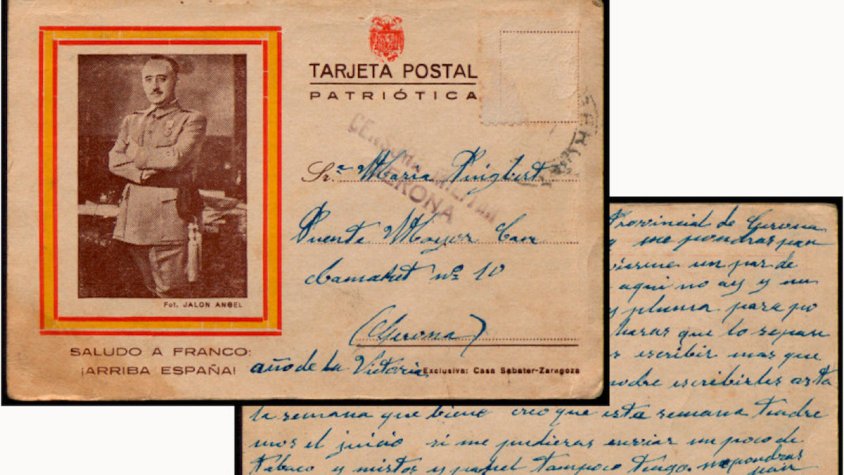 TARJETA POSTAL
PATRIÓTICA
CENSURA MILITAR
GERONA
Sr. Maria Puigbert
Puente Mayor Can
nº 10
(Gerona)
año de la Victoria
Fot. JALON ANGEL
SALUDO A FRANCO:
¡ARRIBA ESPAÑA!
Exclusiva: Casa Sabater-Zaragoza
Provincial de Gerona
y me pondras pan
un par de
aqui no ay y un
y pluma para po
haras que lo sepan
escribir mas que
escribirles asta
la semana que biene creo que esta semana tendre
mos el juicio si me pudieras enviar un poco de
tabaco y mistos y papel tampoco tengo me pondras
pan